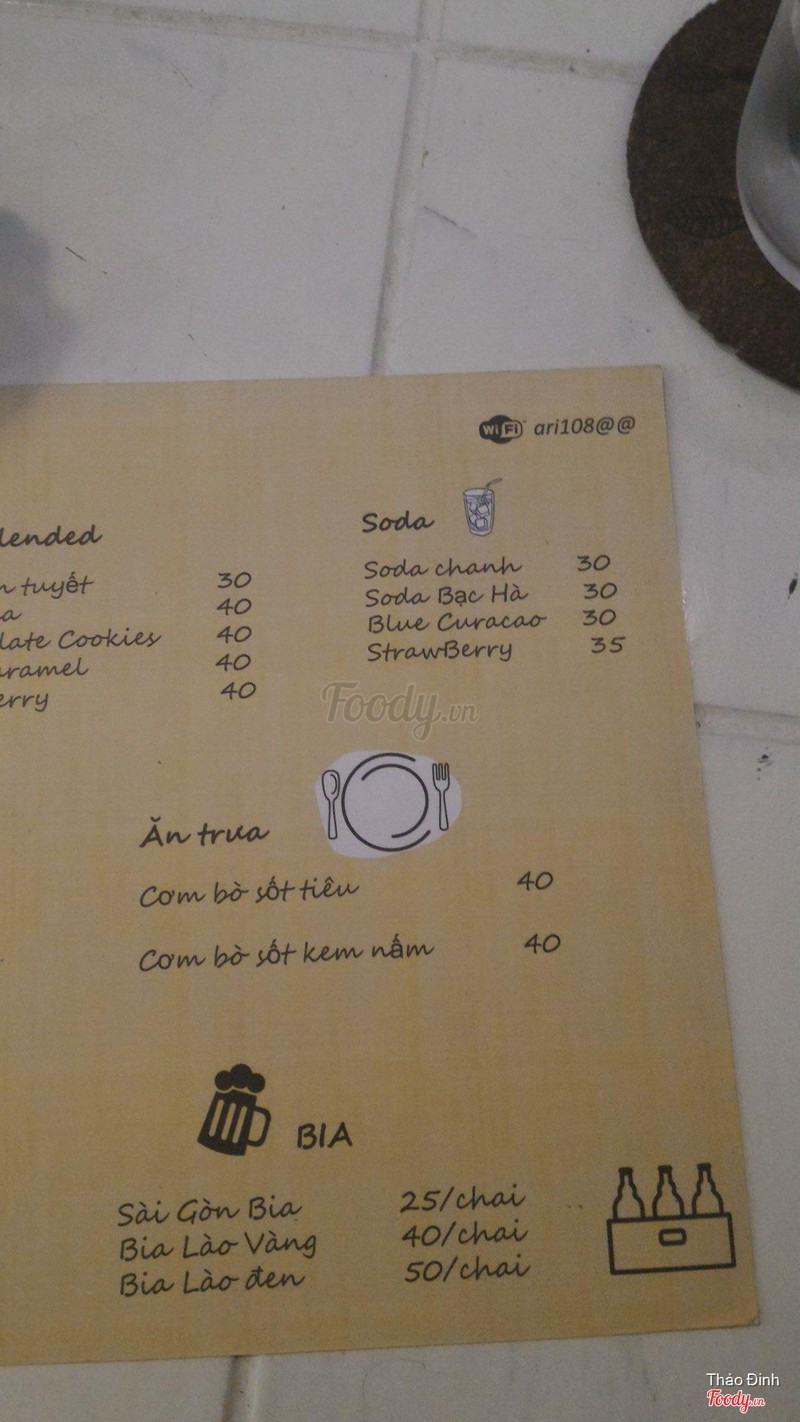 WiFi ari108@@
lended
n tuyết 30
a 40
late Cookies 40
aramel 40
erry 40
Soda
Soda chanh 30
Soda Bạc Hà 30
Blue Curacao 30
StrawBerry 35
Foody.vn
Ăn trưa
Cơm bò sốt tiêu 40
Cơm bò sốt kem nấm 40
BIA
Sài Gòn Bia 25/chai
Bia Lào Vàng 40/chai
Bia Lào đen 50/chai
Thảo Đinh
Foody.vn